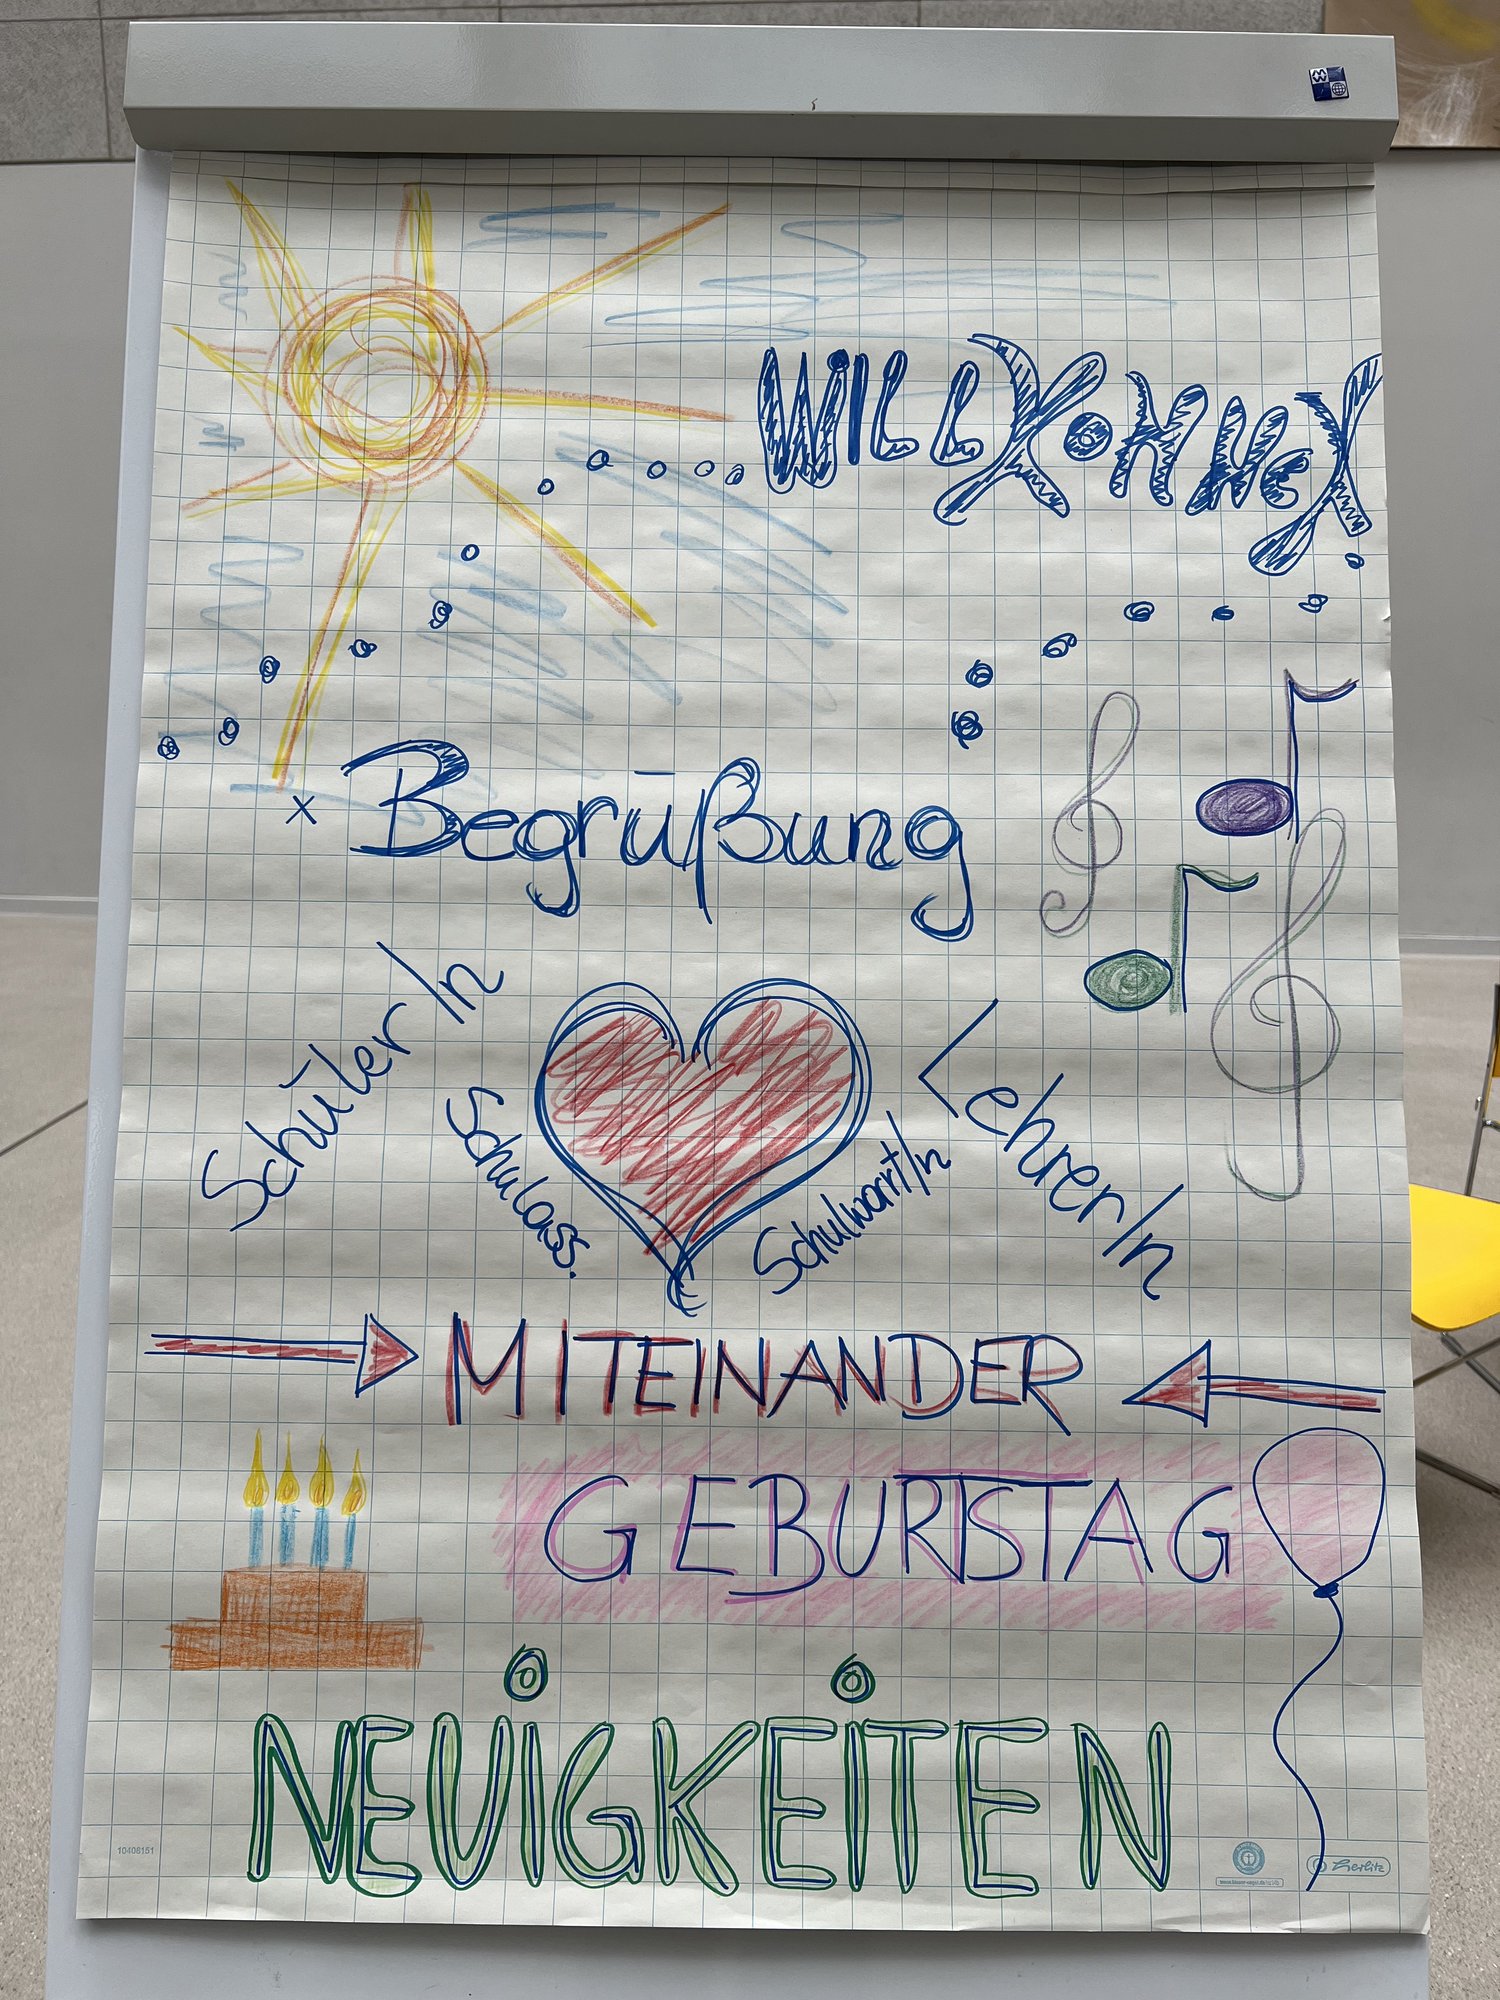 WiLLKOMMEN
x Begrüßung
SchülerIn
Schulass.
Schulwart/in
Lehrer/n
MITEINANDER
GEBURTSTAG
NEUiGKEiTEN
10408151
Herlitz